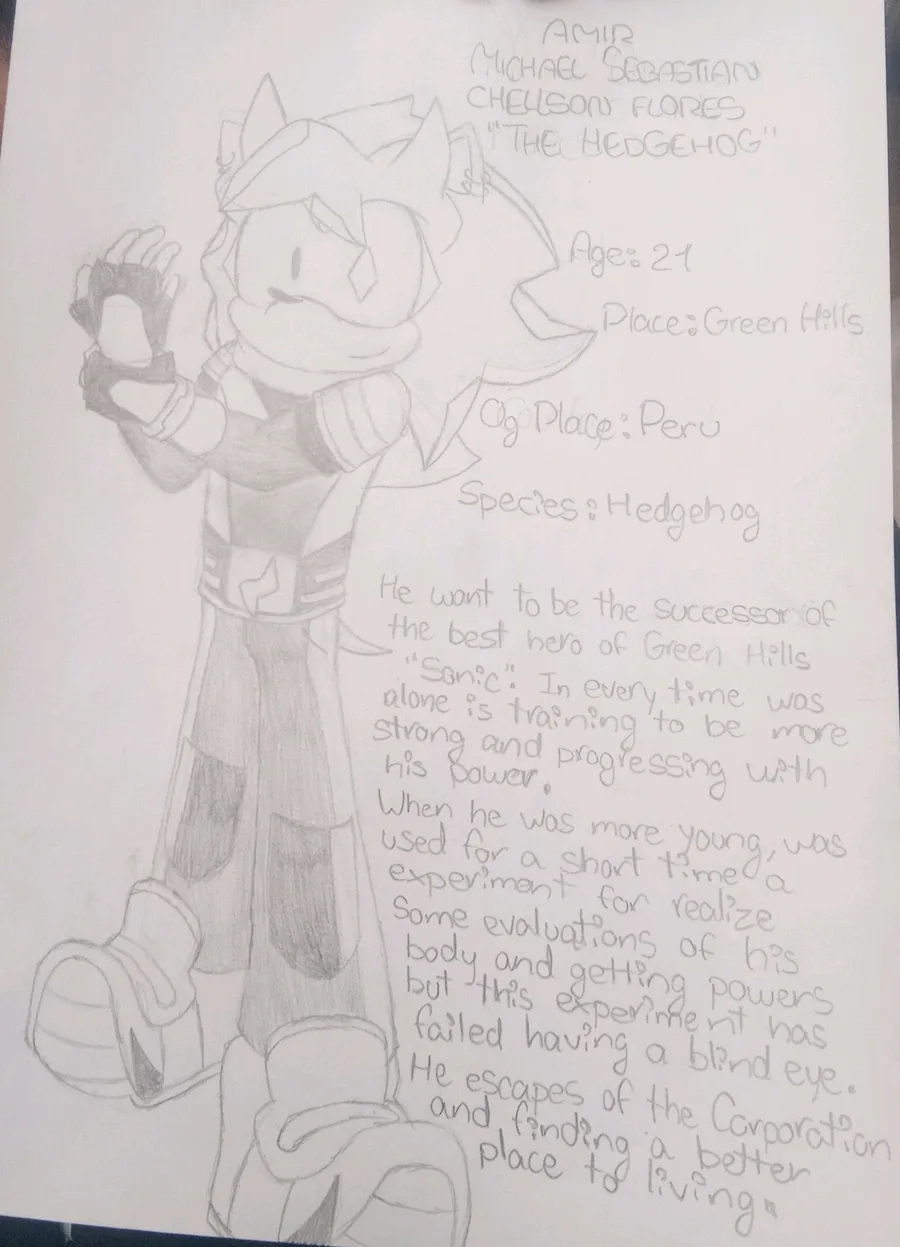 AMIR
MICHAEL SEBASTIAN
CHELLSON FLORES
"THE HEDGEHOG"
Age: 21
Place: Green Hills
Og Place: Peru
Species: Hedgehog
He want to be the successor of
the best hero of Green Hills
"Sonic". In every time was
alone is training to be more
strong and progressing with
his power.
When he was more young, was
used for a short time a
experiment for realize
Some evaluations of his
body and getting powers
but this experiment has
failed having a blind eye.
He escapes of the Corporation
and finding a better
place to living.